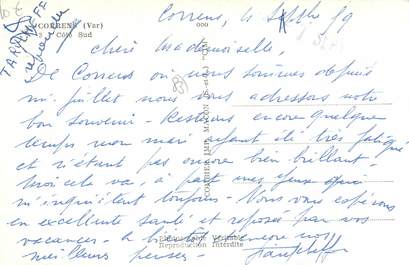 CORRENS (Var)
Côté Sud
TARDIEFF
répondu
Correns, 4 Septbre 59
Chère Mademoiselle,
De Correns où nous sommes depuis
mi-juillet nous vous adressons notre
bon souvenir - Restons encore quelque
temps mon mari ayant été très fatigué
et n'étant pas encore bien brillant -
moi cela va, à part mes yeux qui
m'inquiètent toujours - Nous vous espérons
en excellente santé et reposée par vos
vacances - à bientôt encore nos
meilleurs pensées -
COMBIER IMP. MACON (S.-et-L.) "CIM"
Photographie Véritable
Reproduction Interdite